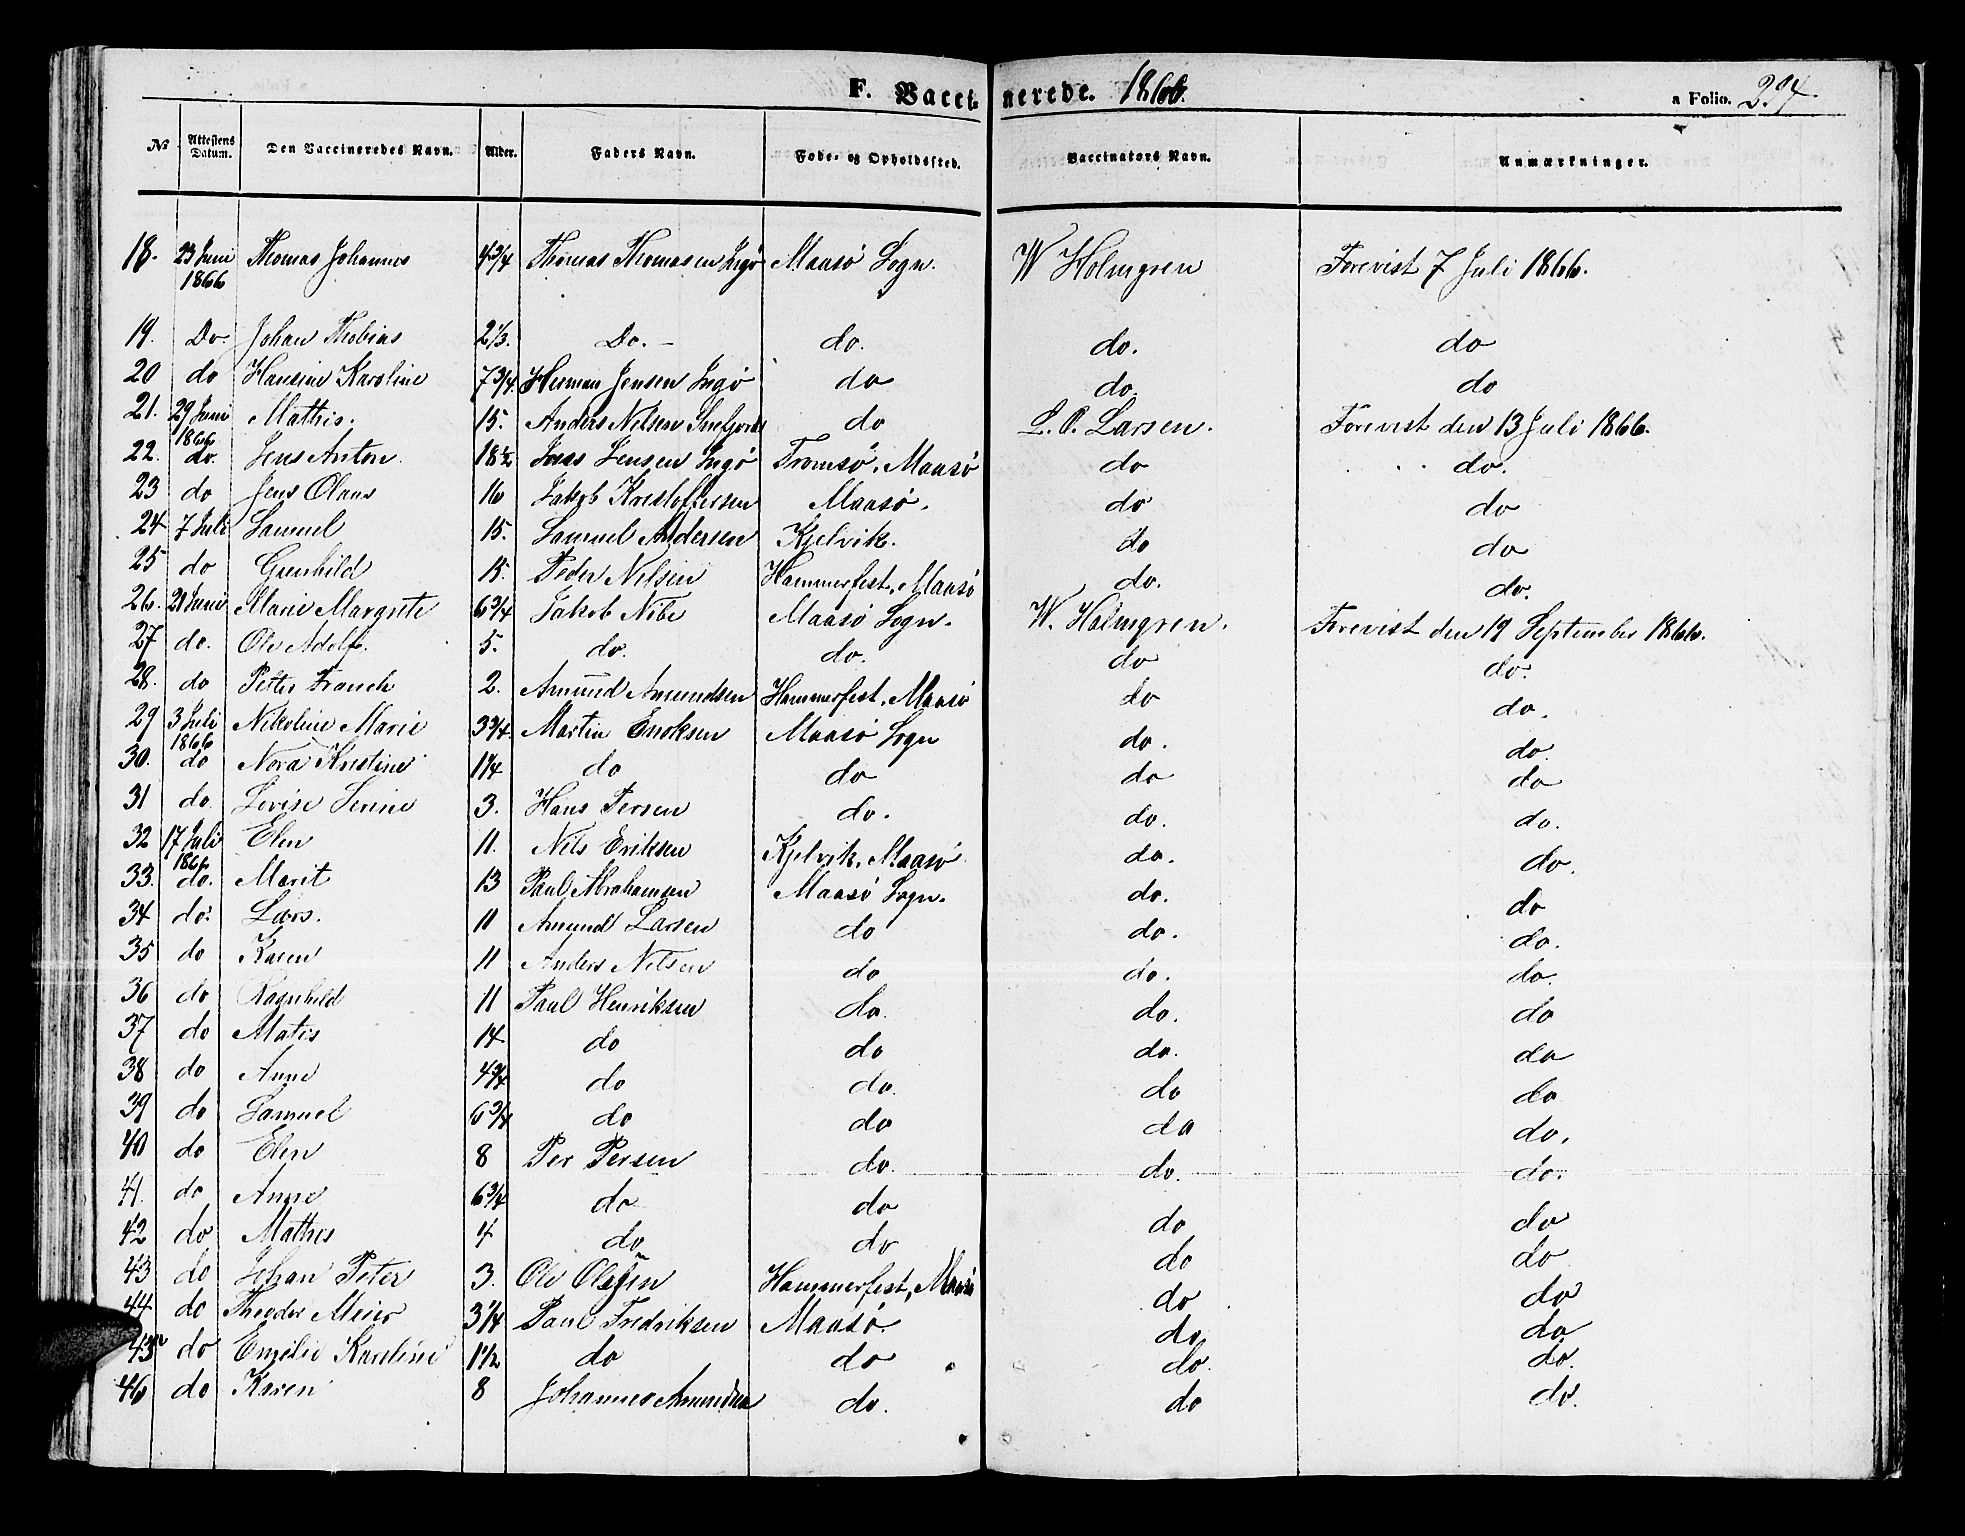 F. Vaccinerede. 1866. a Folio. 297.
№ Attestens Datum. Den Vaccineredes Navn. Alder. Faders Navn. Føde- og Opholdssted. Vaccinators Navn. Anmærkninger.
18. 23 Juni 1866 Thomas Johannes 4 3/4 Thomas Thomasen Ingø Maasø Sogn. W Holmgren Forevist 7 Juli 1866.
19. Do Johan Thobias 2 1/3. Do. — do. do. do
20 do Hansine Karoline 7 3/4. Herman Jensen Ingø do do. do
21. 29 Juni 1866 Mathis. 15. Anders Nilsen Snefjord do L. O. Larsen. Forevist den 13 Juli 1866.
22. do. Jens Anton. 18 1/2 Jens Jensen Ingø Tromsø, Maasø do do.
23 do Jens Olaus 16 Jakob Kristoffersen Maasø. do do
24 7 Juli Samuel 15. Samuel Andersen Kjelvik. do do
25 do Grenhild 15. Peder Nilsen Hammerfest, Maasø do. do.
26. 21 Juni Marie Margrete 6 3/4 Jakob Nibe Maasø Sogn. W. Holmgren. Forevist den 19 September 1866.
27 do. Ole Adolf. 5. do. do. do do.
28. do Petter Franck 2. Amund Amundsen Hammerfest, Maasø do do.
29 3 Juli 1866 Nikoline Marie 3 3/4. Martin Enoksen Maasø Sogn do. do.
30. do Nora Kristine 1 1/4 do do do do
31 do. Lovise Serine 3. Hans Persen do. do. do.
32 17 Juli 1866 Elen 11. Nils Eriksen Kjelvik, Maasø do. do.
33. do. Marit 13 Paul Abrahamsen Maasø Sogn. do. do
34 do. Lars. 11 Amund Larsen do do. do.
35 do Karen 11 Anders Nilsen do do. do.
36 do Ragnhild 11 Paul Henriksen do. do. do
37 do Matis 14 do do do. do
38 do Anne 4 3/4 do do. do do
39 do Samuel 6 3/4 do do do do.
40 do Elen 8 Per Persen do. do. do.
41. do Anne 6 3/4 do do do do
42 do Mathis 4 do do do do
43 do Johan Peter 3. Ole Olsen Hammerfest, Maasø do do
44 do Theodor Meier 3 1/4 Paul Fredriksen Maasø. do. do
45 do Emelie Karoline 1 1/2 do do do. do.
46 do Karen 8 Johannes Amundsen do. do do.